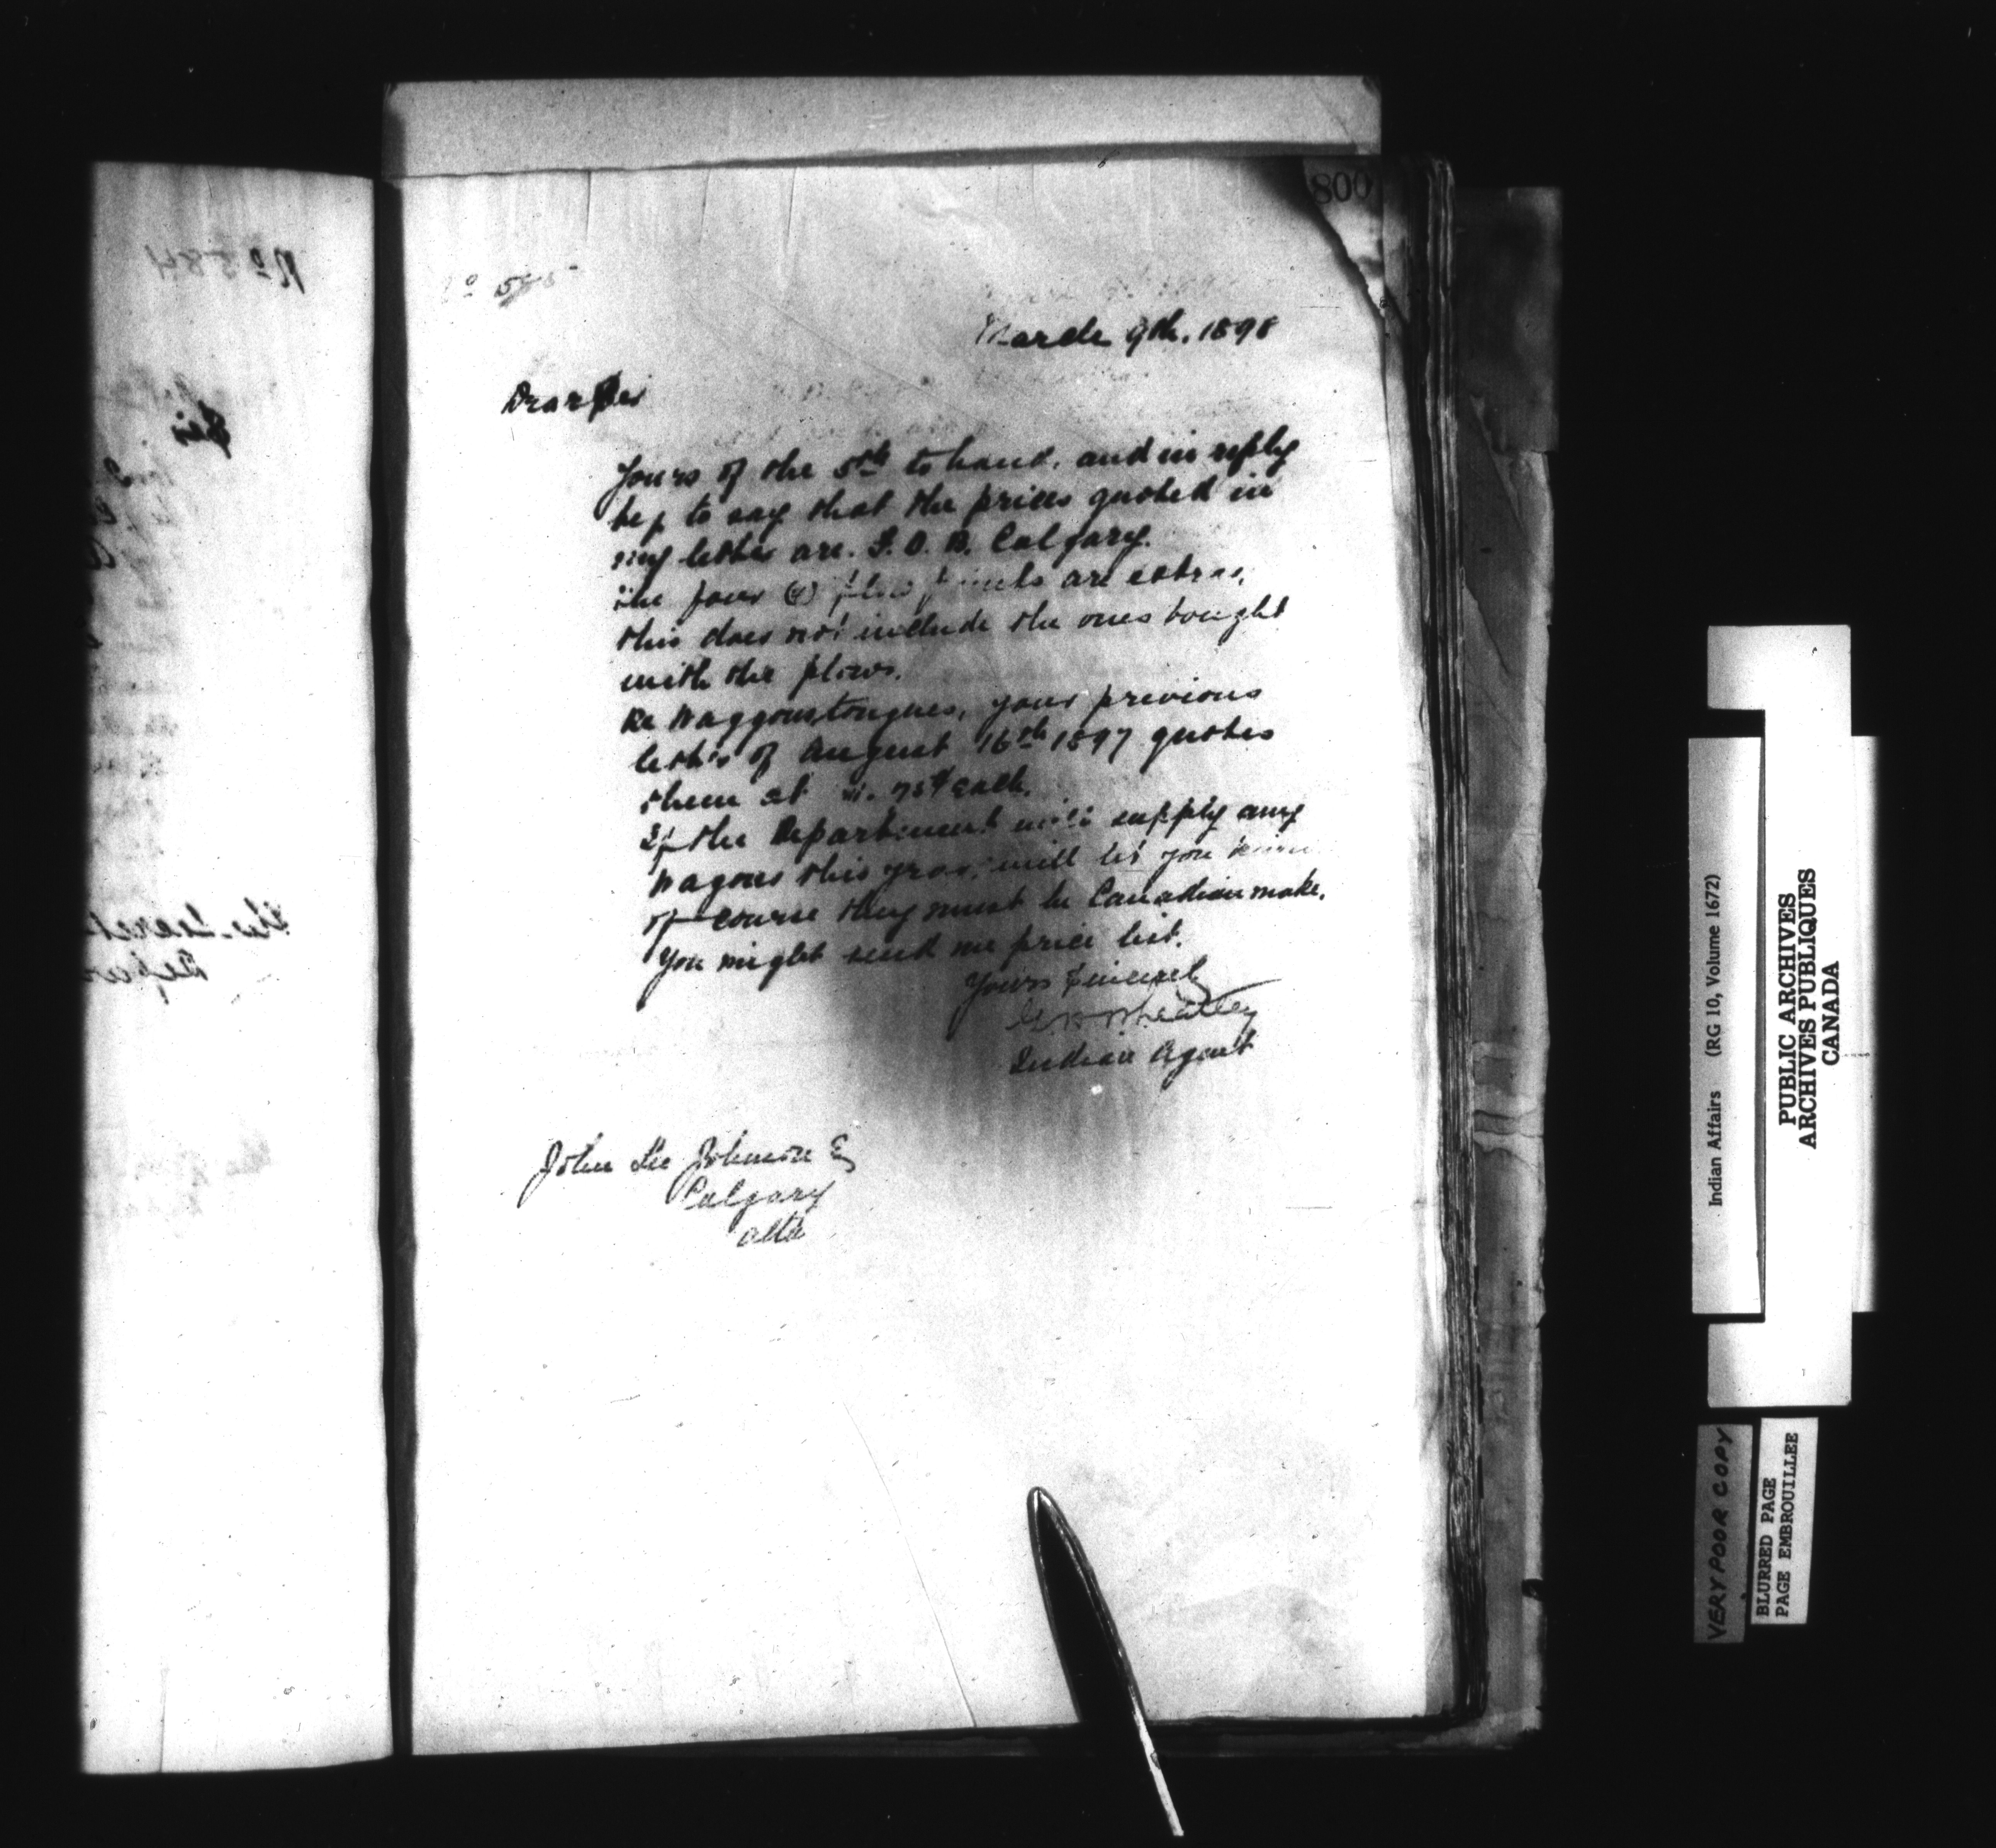 800
No 585
March 9th, 1898
Dear Sir
Yours of the 5th to hand, and in reply
beg to say that the prices quoted in
my letter are. F. O. B. Calgary.
The four (4) plow points are extras,
this does not include the ones bought
with the plows.
Re Waggons tongues, your previous
letter of August 16th 1897 quotes
them at each.
If the Department will supply any
Wagons this year, will let you know
of course they must be Canadian make.
You might send me price list.
Yours Sincerely
G H Wheatley
Indian Agent
John Lee Johnson E
Calgary
Alta
No 584
Sir
Indian Affairs (RG 10, Volume 1672)
PUBLIC ARCHIVES
ARCHIVES PUBLIQUES
CANADA
VERY POOR COPY
BLURRED PAGE
PAGE EMBROUILLEE